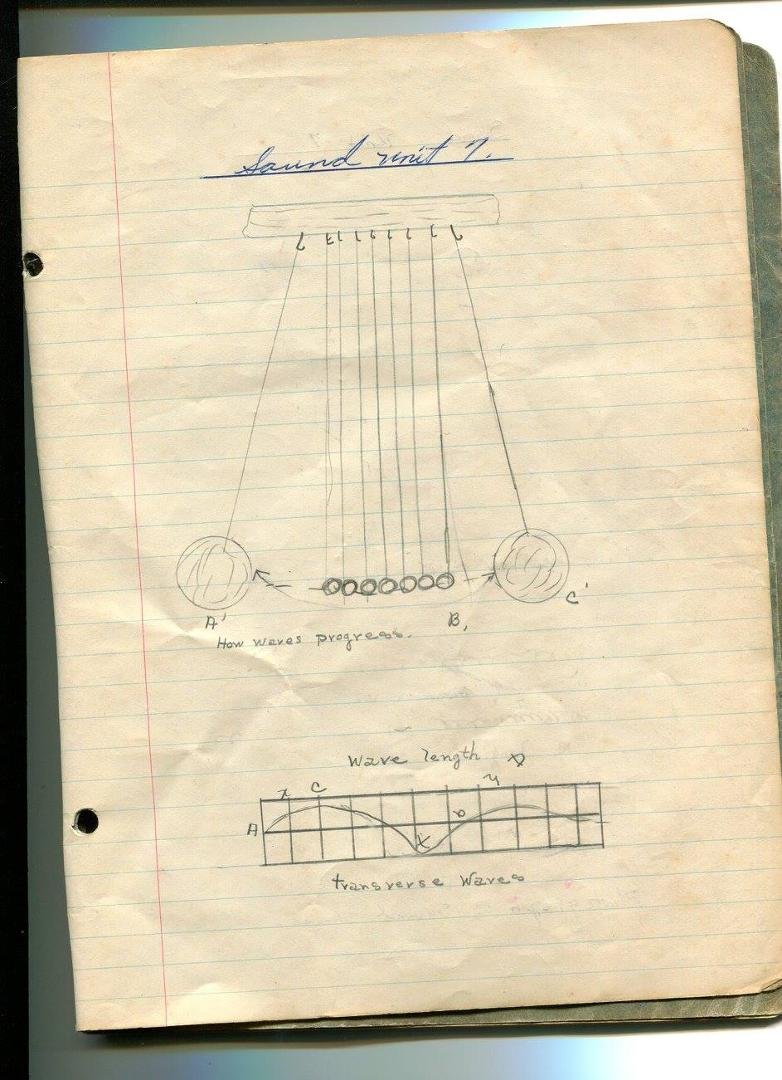 Sound unit 7.
A' B, C'
How waves progress.
Wave length
x C y
A x o
transverse Waves